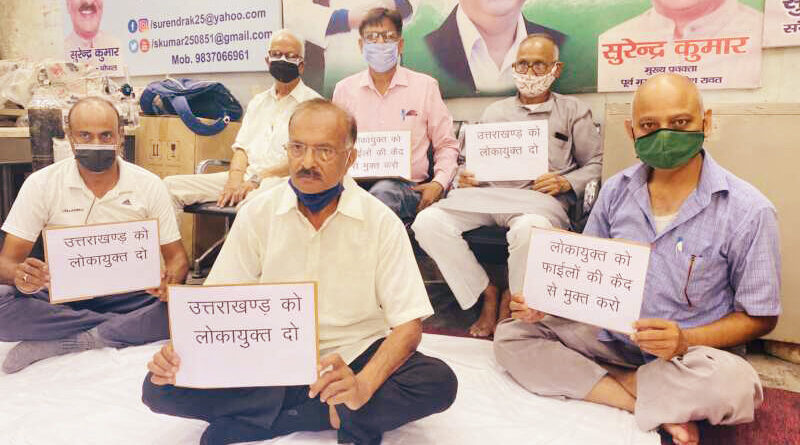 /surendrak25@yahoo.com
/skumar250851@gmail.com
Mob. 9837066961
सुरेन्द्र कुमार
सुरेन्द्र कुमार
मुख्य प्रवक्ता
उत्तराखण्ड़ को
लोकायुक्त दो
उत्तराखण्ड़ को
लोकायुक्त दो
लोकायुक्त को
फाईलों की कैद
से मुक्त करो
उत्तराखण्ड़ को
लोकायुक्त दो
लोकायुक्त को
फाईलों की कैद
से मुक्त करो